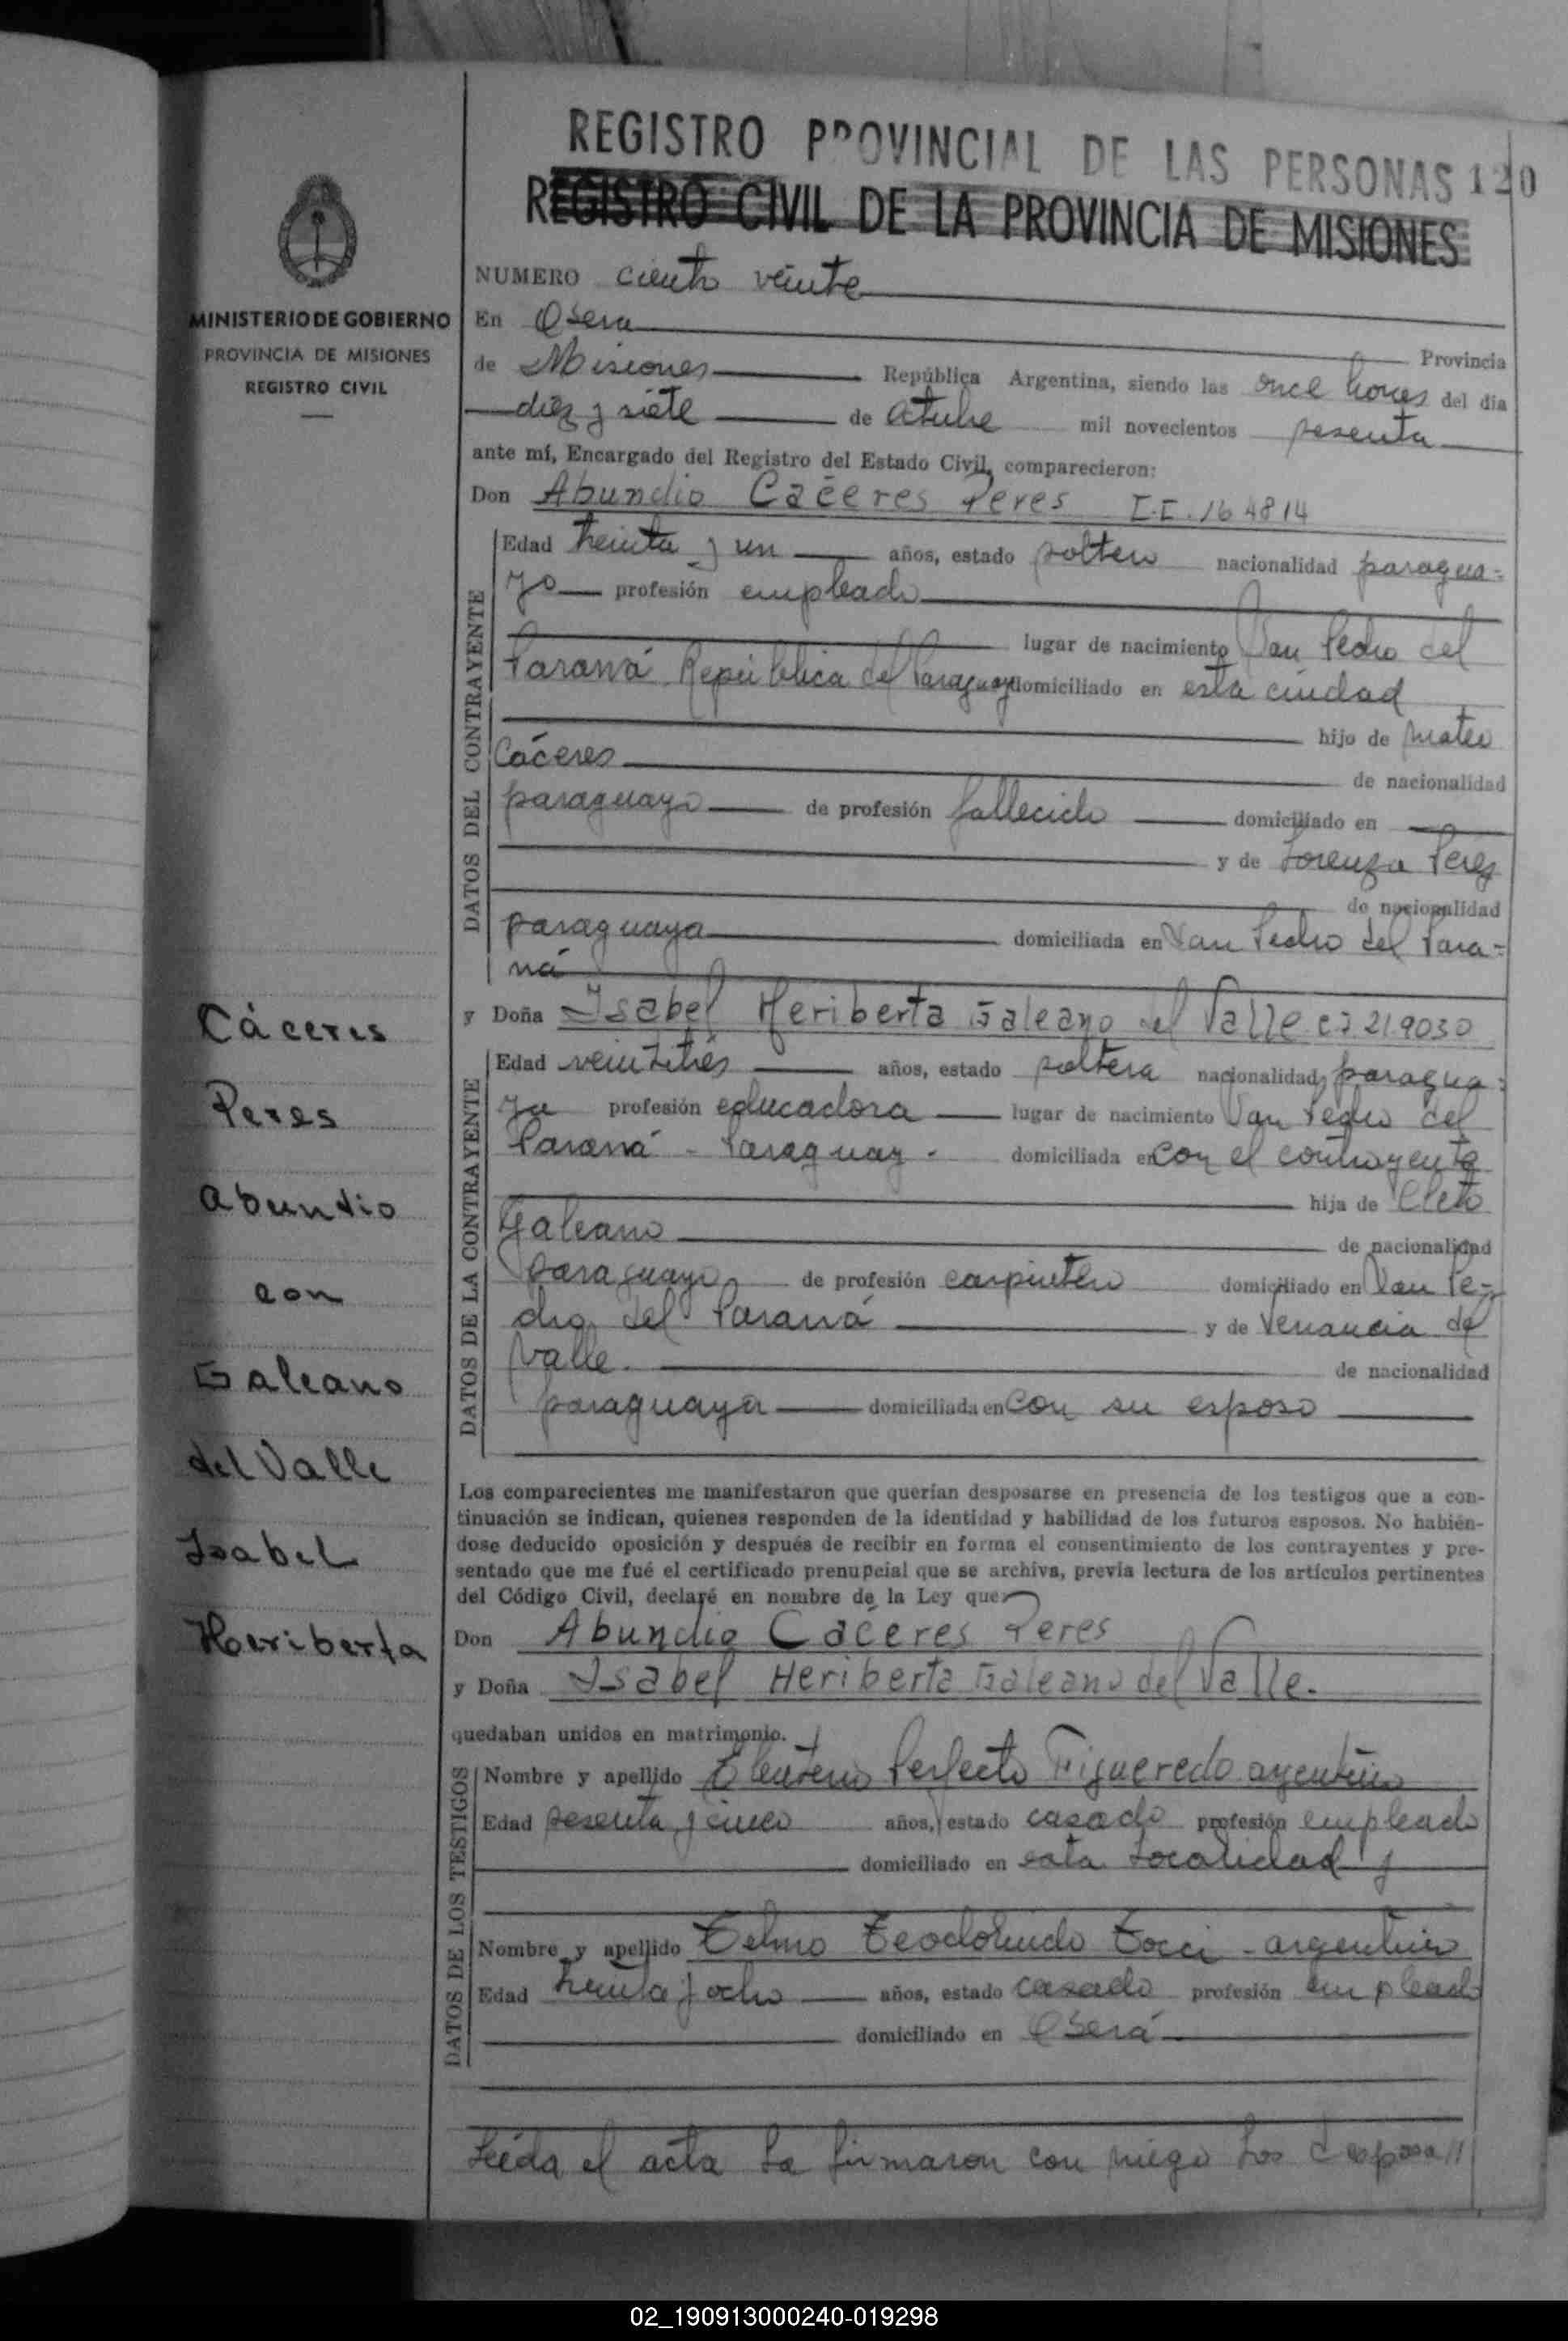 REGISTRO PROVINCIAL DE LAS PERSONAS 120
REGISTRO CIVIL DE LA PROVINCIA DE MISIONES
MINISTERIO DE GOBIERNO
PROVINCIA DE MISIONES
REGISTRO CIVIL
NUMERO ciento veinte
En Oberá
Provincia
de Misiones República Argentina, siendo las once horas del día
diez y siete de Octubre mil novecientos sesenta
ante mí, Encargado del Registro del Estado Civil, comparecieron:
Don Abundio Cáceres Peres I.I. 164814
DATOS DEL CONTRAYENTE
Edad treinta y un años, estado soltero nacionalidad paragua=
yo profesión empleado
lugar de nacimiento San Pedro del
Paraná República del Paraguay domiciliado en esta ciudad
hijo de Mateo
Cáceres
de nacionalidad
paraguayo de profesión fallecido domiciliado en
y de Lorenza Peres
de nacionalidad
paraguaya domiciliada en San Pedro del Para=
ná
y Doña Isabel Heriberta Galeano del Valle C.I 219030
DATOS DE LA CONTRAYENTE
Edad veintitrés años, estado soltera nacionalidad paragua=
ya profesión educadora lugar de nacimiento San Pedro del
Paraná - Paraguay - domiciliada en con el contrayente
hija de Cleto
Galeano
de nacionalidad
paraguayo de profesión carpintero domiciliado en San Pe-
dro del Paraná y de Venancia del
Valle.
de nacionalidad
paraguaya domiciliada en con su esposo
Cáceres
Peres
Abundio
con
Galeano
del Valle
Isabel
Heriberta
Los comparecientes me manifestaron que querían desposarse en presencia de los testigos que a con-
tinuación se indican, quienes responden de la identidad y habilidad de los futuros esposos. No habién-
dose deducido oposición y después de recibir en forma el consentimiento de los contrayentes y pre-
sentado que me fué el certificado prenupcial que se archiva, previa lectura de los artículos pertinentes
del Código Civil, declaré en nombre de la Ley que
Don Abundio Cáceres Peres
y Doña Isabel Heriberta Galeano del Valle.
quedaban unidos en matrimonio.
DATOS DE LOS TESTIGOS
Nombre y apellido Eleuterio Perfecto Figueredo argentino
Edad sesenta y cinco años, estado casado profesión empleado
domiciliado en esta localidad y
Nombre y apellido Telmo Teodolindo Tocci - argentino
Edad treinta y ocho años, estado casado profesión empleado
domiciliado en Oberá
Leída el acta la firmaron con migo los desposa//
02_190913000240-019298